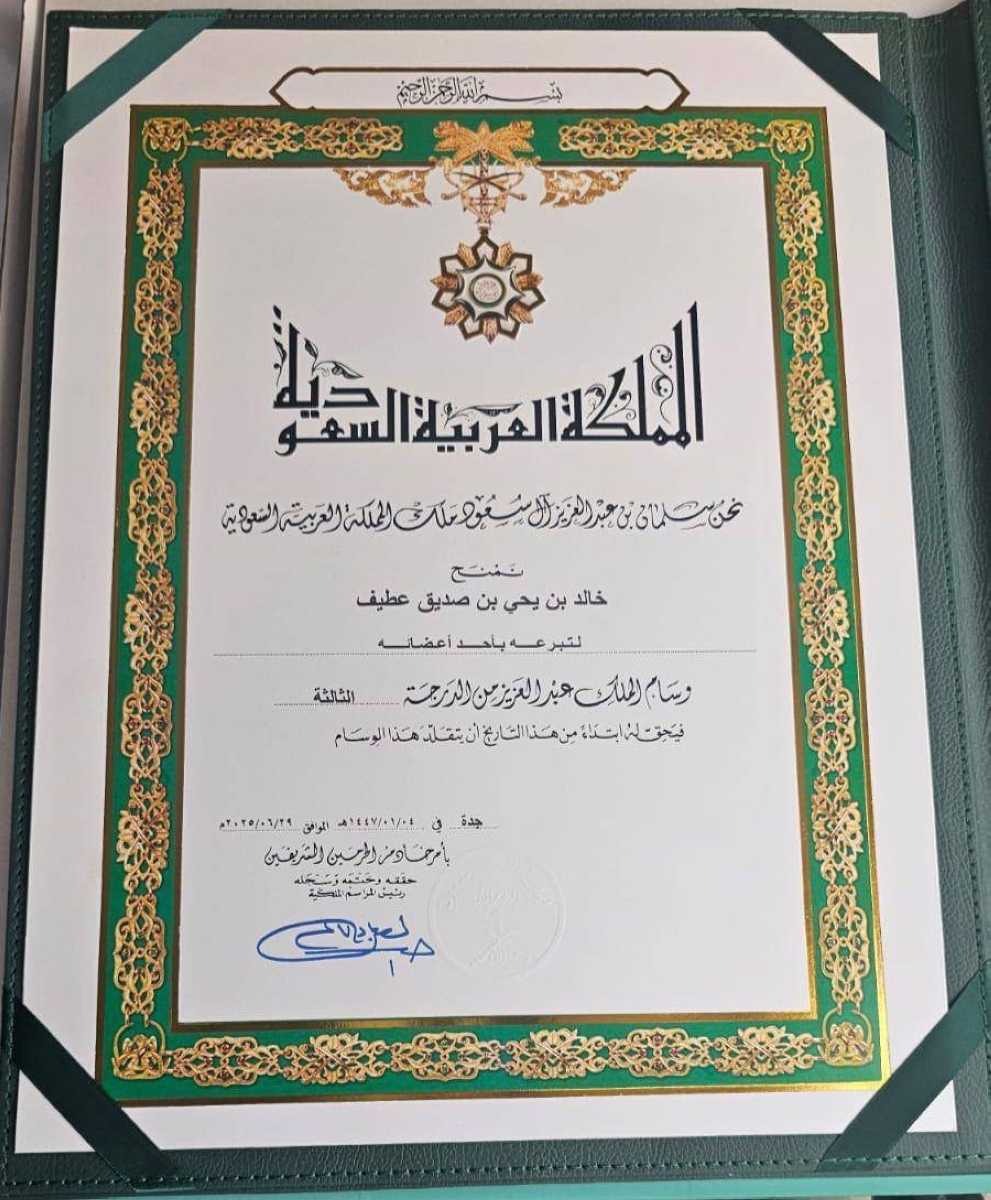 بسم الله الرحمن الرحيم
المملكة العربية السعودية
نحن سلمان بن عبد العزيز آل سعود ملك المملكة العربية السعودية
نمنح
خالد بن يحي بن صديق عطيف
لتبرعه بأحد أعضائه
وسام الملك عبد العزيز من الدرجة الثالثة
فيحق له ابتداءً من هذا التاريخ أن يتقلد هذا الوسام
جدة في ١٤٤٧/٠١/٠٤هـ الموافق ٢٠٢٥/٠٦/٢٩م
بأمر خادم الحرمين الشريفين
حققه وختمه وسجله
رئيس المراسم الملكية